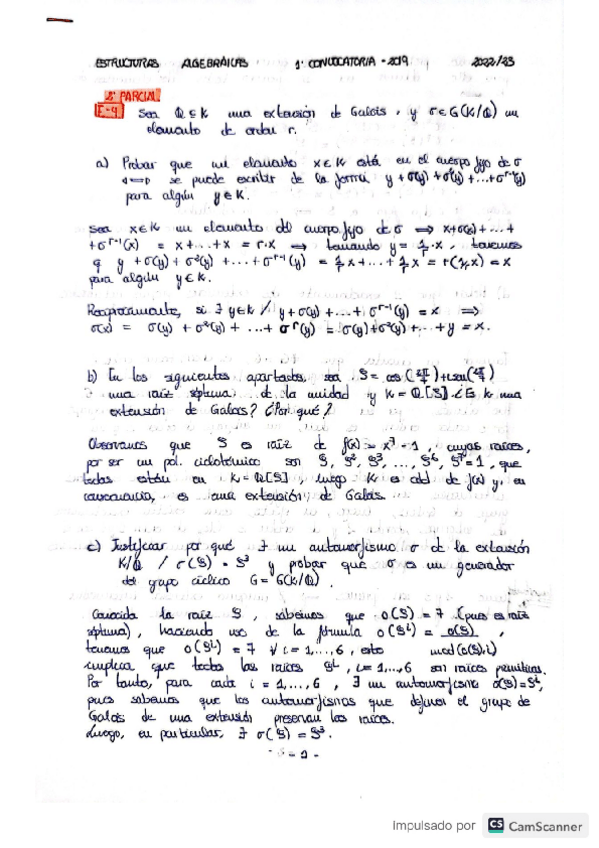 ESTRUCTURAS ALGEBRAICAS 1ª CONVOCATORIA - 2019 2022/23
2º PARCIAL
E-4 Sea Q ⊆ K una extensión de Galois, y σ ∈ G(K/Q) un
elemento de orden r.
a) Probar que un elemento x ∈ K está en el cuerpo fijo de σ
⟺ se puede escribir de la forma y + σ(y) + σ²(y) + ... + σʳ⁻¹(y)
para algún y ∈ K.
Sea x ∈ K un elemento del cuerpo fijo de σ ⟹ x + σ(x) + ... +
+ σʳ⁻¹(x) = x + ... + x = r·x ⟹ tomando y = 1/r · x, tenemos
q y + σ(y) + σ²(y) + ... + σʳ⁻¹(y) = 1/r x + ... + 1/r x = r(1/r x) = x
para algún y ∈ K.
Recíprocamente, si ∃ y ∈ K / y + σ(y) + ... + σʳ⁻¹(y) = x ⟹
σ(x) = σ(y) + σ²(y) + ... + σʳ(y) = σ(y) + σ²(y) + ... + y = x.
b) En los siguientes apartados, sea ζ = cos(2π/7) + i sen(2π/7)
una raíz séptima de la unidad y K = Q[ζ] ¿Es K una
extensión de Galois? ¿Por qué?
Observamos que ζ es raíz de f(x) = x⁷ - 1, cuyas raíces,
por ser un pol. ciclotómico son ζ, ζ², ζ³, ..., ζ⁶, ζ⁷ = 1, que
todas están en K = Q[ζ], luego K es cdd de f(x) y, en
consecuencia, es una extensión de Galois.
c) Justificar por qué ∃ un automorfismo σ de la extensión
K/Q / σ(ζ) = ζ³ y probar que σ es un generador
del grupo cíclico G = G(K/Q).
Conocida la raíz ζ, sabemos que o(ζ) = 7 (pues es raíz
séptima), haciendo uso de la fórmula o(ζⁱ) = o(ζ) ,
tenemos que o(ζⁱ) = 7 ∀ i = 1, ..., 6, esto mcd(o(ζ), i)
implica que todas las raíces ζⁱ, i = 1, ..., 6 son raíces primitivas.
Por tanto, para cada i = 1, ..., 6, ∃ un automorfismo σ(ζ) = ζⁱ,
pues sabemos que los automorfismos que definen el grupo de
Galois de una extensión preservan las raíces.
Luego, en particular, ∃ σ(ζ) = ζ³.
- 1 -
Impulsado por CS CamScanner